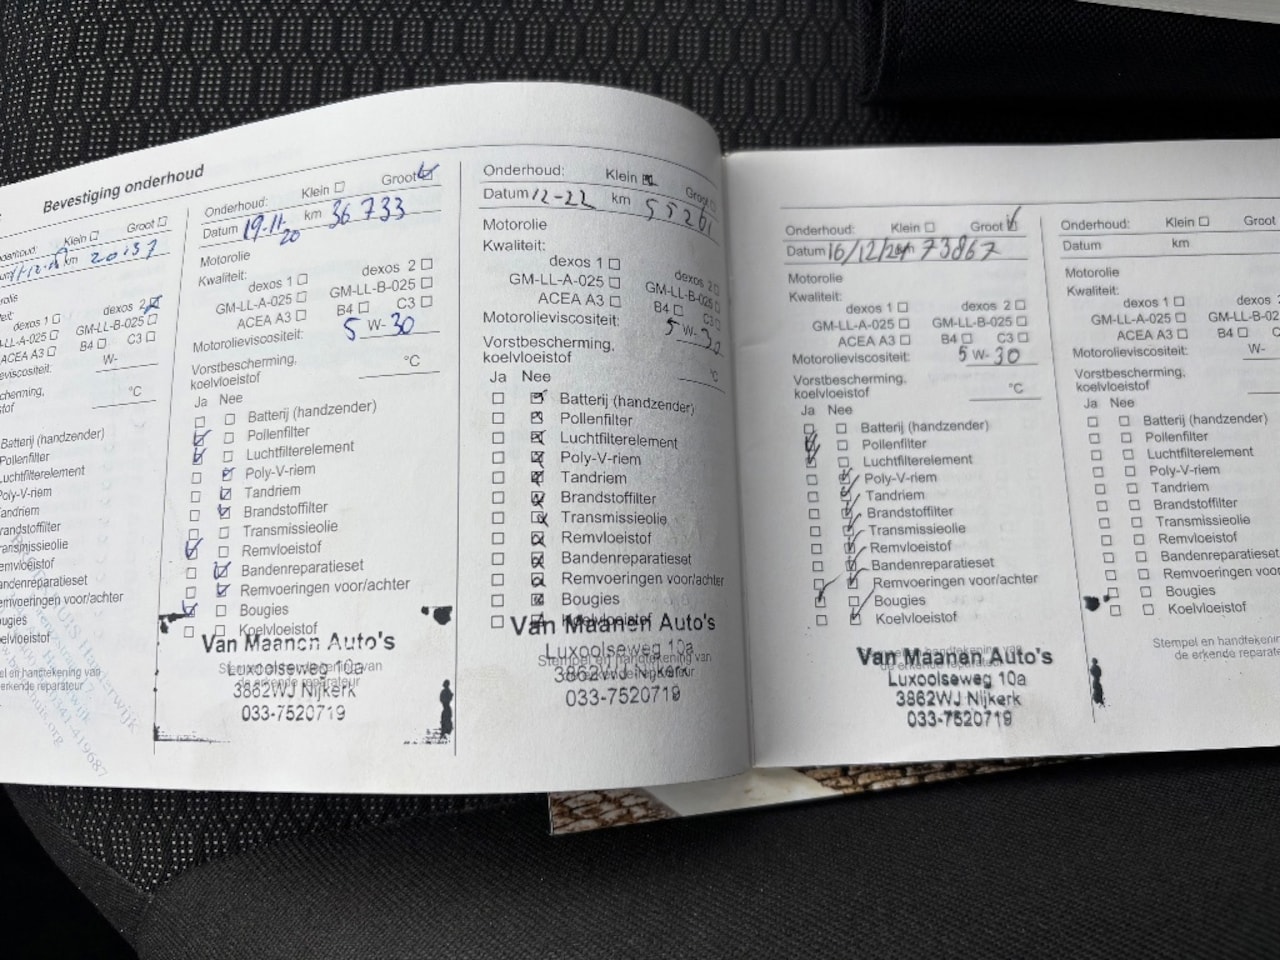 Bevestiging onderhoud
Klein Groot
km 20157
dexos 1 dexos 2
GM-LL-B-025
ACEA A3 B4 C3
W-
°C
Batterij (handzender)
Pollenfilter
Luchtfilterelement
Poly-V-riem
Tandriem
Brandstoffilter
Transmissieolie
Remvloeistof
Bandenreparatieset
Remvoeringen voor/achter
Bougies
Koelvloeistof
Stempel en handtekening van
de erkende reparateur
Onderhoud: Klein Groot
Datum 19-11-20 km 36733
Motorolie
Kwaliteit:
dexos 1 dexos 2
GM-LL-A-025 GM-LL-B-025
ACEA A3 B4 C3
Motorolieviscositeit: 5 W- 30
Vorstbescherming,
koelvloeistof °C
Ja Nee
Batterij (handzender)
Pollenfilter
Luchtfilterelement
Poly-V-riem
Tandriem
Brandstoffilter
Transmissieolie
Remvloeistof
Bandenreparatieset
Remvoeringen voor/achter
Bougies
Koelvloeistof
Van Maanen Auto's
Luxoolseweg 10a
3862WJ Nijkerk
033-7520719
Onderhoud: Klein Groot
Datum 12-22 km 55261
Motorolie
Kwaliteit:
dexos 1 dexos 2
GM-LL-A-025 GM-LL-B-025
ACEA A3 B4 C3
Motorolieviscositeit: 5 W- 30
Vorstbescherming,
koelvloeistof °C
Ja Nee
Batterij (handzender)
Pollenfilter
Luchtfilterelement
Poly-V-riem
Tandriem
Brandstoffilter
Transmissieolie
Remvloeistof
Bandenreparatieset
Remvoeringen voor/achter
Bougies
Koelvloeistof
Van Maanen Auto's
Luxoolseweg 10a
3862WJ Nijkerk
033-7520719
Onderhoud: Klein Groot
Datum 16/12/24 km 73867
Motorolie
Kwaliteit:
dexos 1 dexos 2
GM-LL-A-025 GM-LL-B-025
ACEA A3 B4 C3
Motorolieviscositeit: 5 W- 30
Vorstbescherming,
koelvloeistof °C
Ja Nee
Batterij (handzender)
Pollenfilter
Luchtfilterelement
Poly-V-riem
Tandriem
Brandstoffilter
Transmissieolie
Remvloeistof
Bandenreparatieset
Remvoeringen voor/achter
Bougies
Koelvloeistof
Van Maanen Auto's
Luxoolseweg 10a
3862WJ Nijkerk
033-7520719
Onderhoud: Klein Groot
Datum km
Motorolie
Kwaliteit:
dexos 1 dexos
GM-LL-A-025
ACEA A3 B4
Motorolieviscositeit: W-
Vorstbescherming,
koelvloeistof
Ja Nee
Batterij (handzender)
Pollenfilter
Luchtfilterelement
Poly-V-riem
Tandriem
Brandstoffilter
Transmissieolie
Remvloeistof
Bandenreparatieset
Remvoeringen voor/
Bougies
Koelvloeistof
Stempel en handtekening
de erkende reparateur